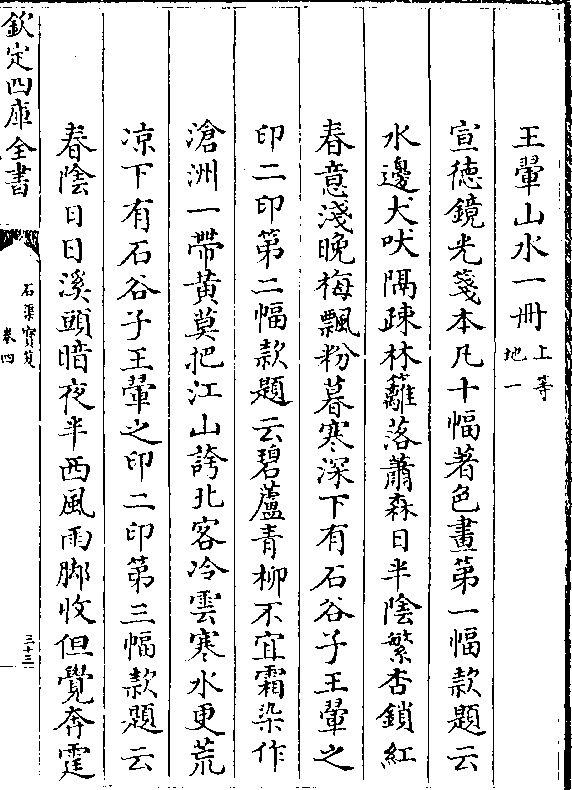 王翬山水一冊上等
地一
宣德鏡光箋本凡十幅著色畫第一幅款題云
水邊犬吠隔疎林籬落蕭森日半陰繁杏鎖紅
春意淺晚梅飄粉暮寒深下有石谷子王翬之
印二印第二幅款題云碧蘆青柳不宜霜染作
滄洲一帶黄莫把江山誇北客冷雲寒水更荒
凉下有石谷子王翬之印二印第三幅款題云
春陰日日溪頭暗夜半西風雨脚收但覺奔霆
欽定四庫全書
石渠寶笈
卷四
三十三